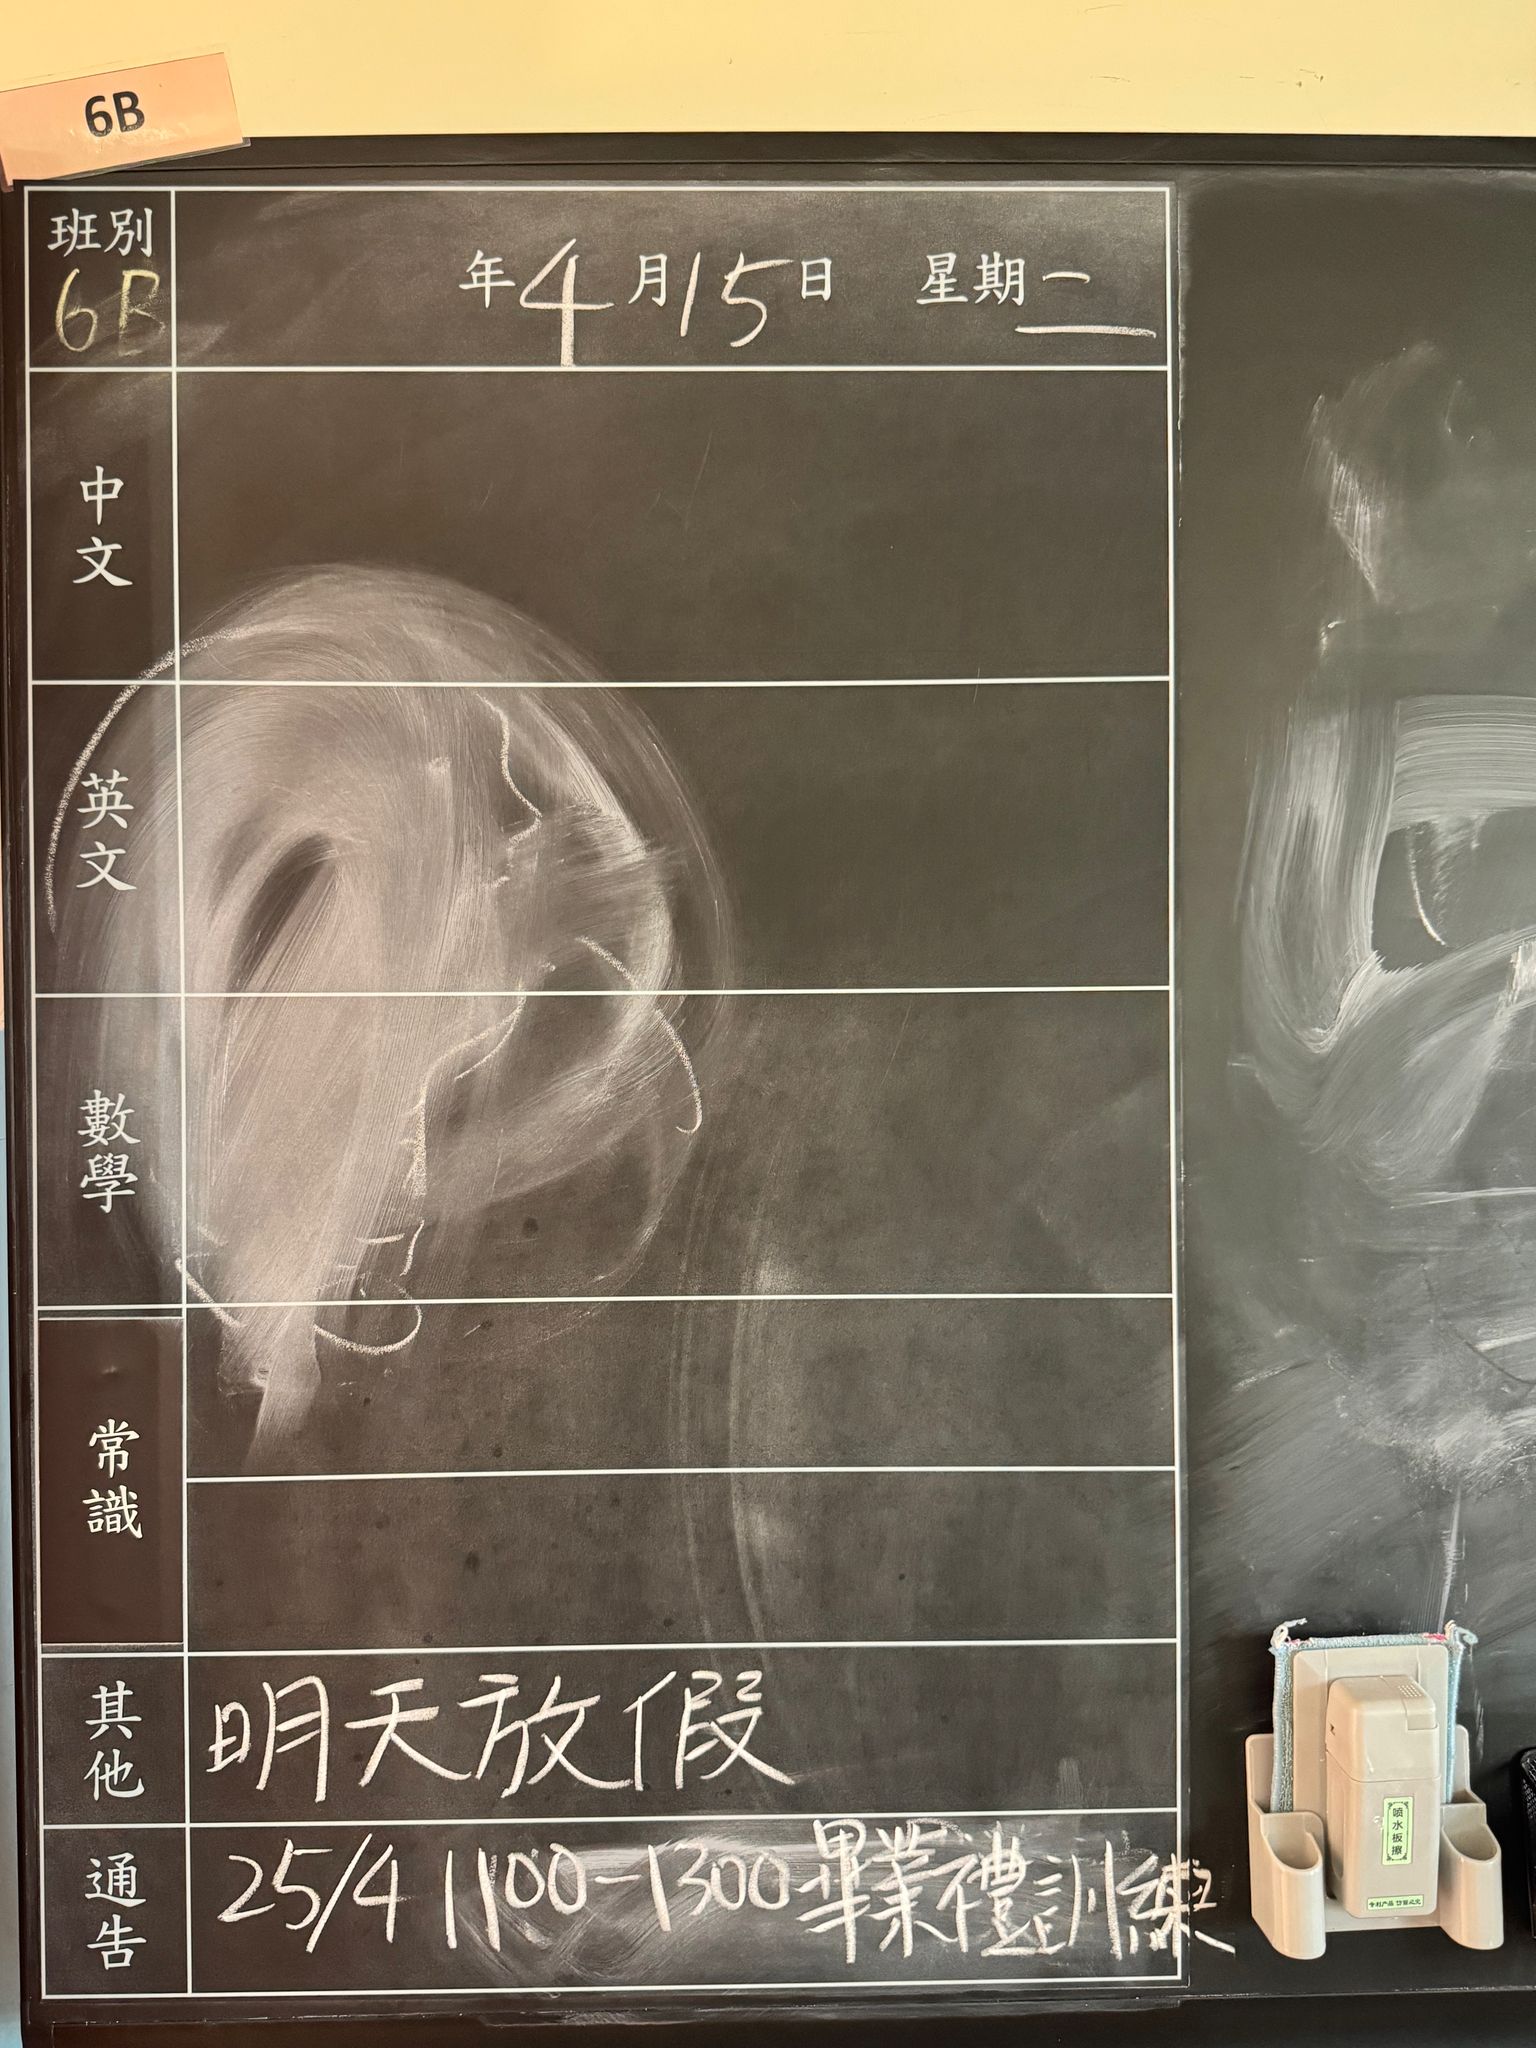 6B
班別
6B
年4月15日 星期二
中文
英文
數學
常識
其他
明天放假
通告
25/4 1100-1300畢業禮訓練
喷水板擦
专利产品 仿冒必究